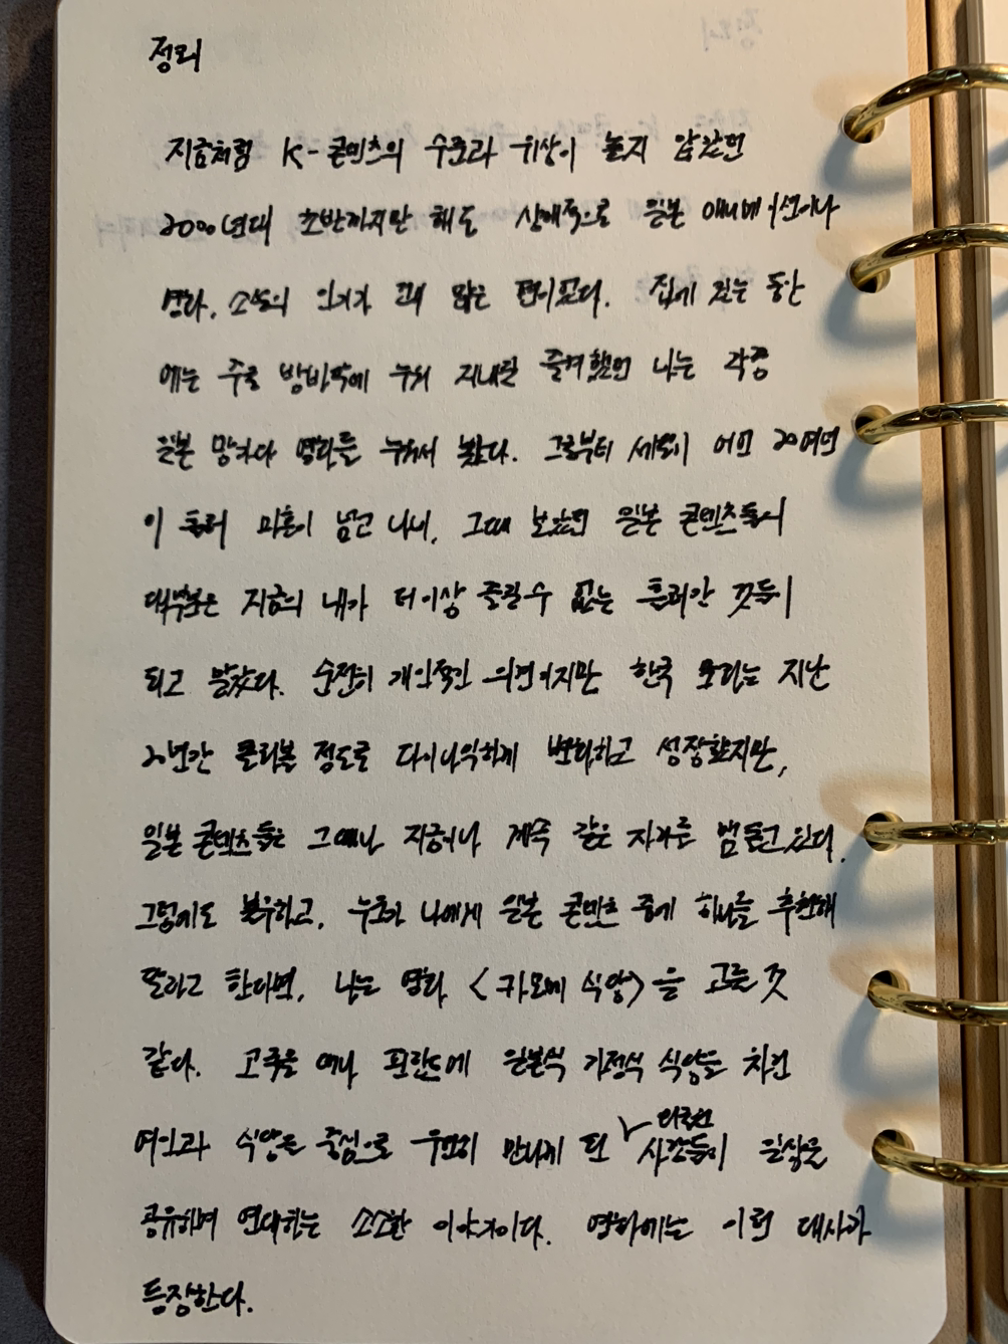 정리
지금처럼 K-콘텐츠의 수준과 위상이 높지 않았던
2000년대 초반까지만 해도 상대적으로 일본 애니메이션이나
영화, 소설의 인기가 꽤 많은 편이었다. 집에 있는 동안
에는 주로 방바닥에 누워 지내길 즐겨했던 나는 각종
일본 만화나 영화를 누워서 봤다. 그로부터 세월이 어언 20여년
이 흘러 마흔이 넘고 나니, 그때 보았던 일본 콘텐츠들의
대부분은 지금의 내가 더이상 즐길수 없는 흘러간 것들이
되고 말았다. 순전히 개인적인 의견이지만 한국 문화는 지난
20년간 롤러볼 정도로 다이나믹하게 변화하고 성장했지만,
일본 콘텐츠들은 그때나 지금이나 계속 같은 자리를 맴돌고 있다.
그럼에도 불구하고, 누군가 나에게 일본 콘텐츠 중에 하나를 추천해
달라고 한다면, 나는 영화 <카모메 식당>을 고를 것
같다. 고국을 떠나 핀란드에 일본식 가정식 식당을 차린
여인과 식당을 중심으로 우연히 만나게 된 외로운 사람들이 일상을
공유하며 연대하는 소소한 이야기이다. 영화에는 이런 대사가
등장한다.